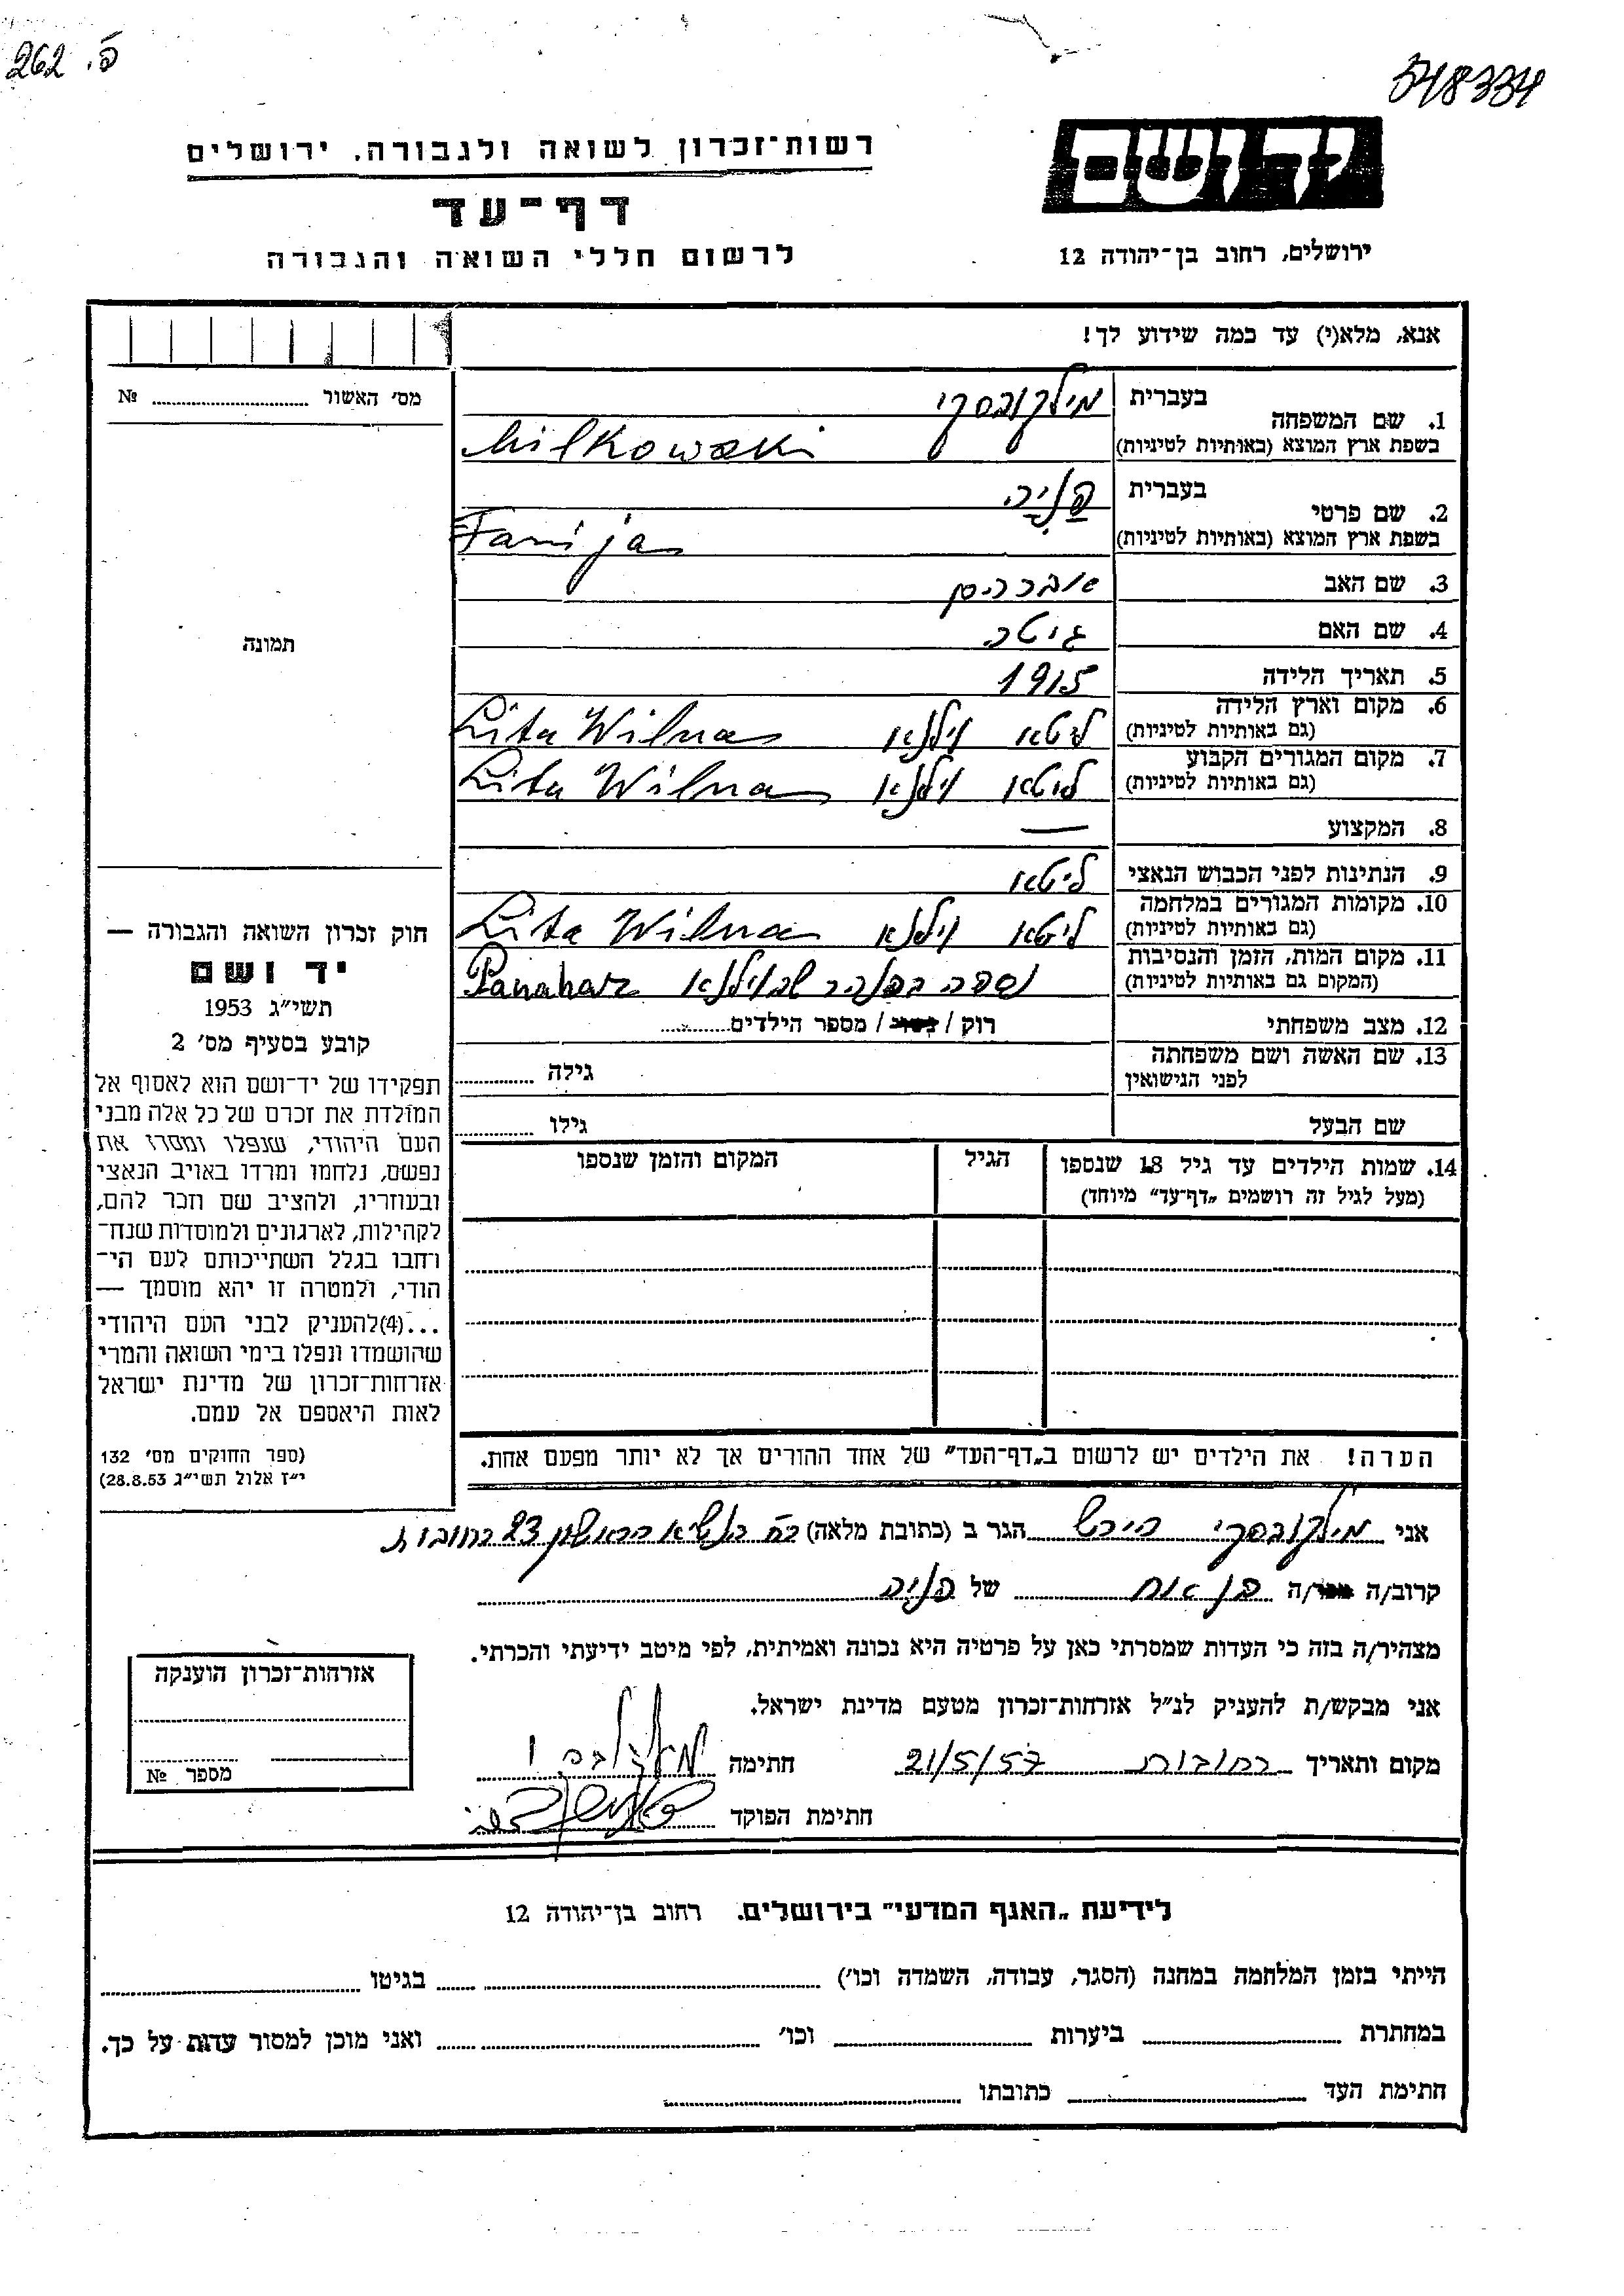 262 .פ
548334
יד ושם
רשות־זכרון לשואה ולגבורה. ירושלים
דף־עד
לרשום חללי השואה והגבורה
ירושלים, רחוב בן־יהודה 12
אנא, מלא(י) עד כמה שידוע לך!
מס' האשור № 
תמונה
1. שם המשפחה
בעברית מילקובסקי
בשפת ארץ המוצא (באותיות לטיניות) Milkowski
2. שם פרטי
בעברית פַנִיה
בשפת ארץ המוצא (באותיות לטיניות) Fanija
3. שם האב אברהם
4. שם האם גיטה
5. תאריך הלידה 1915
6. מקום וארץ הלידה
(גם באותיות לטיניות) ליטא וילנא Lita Wilna
7. מקום המגורים הקבוע
(גם באותיות לטיניות) ליטא וילנא Lita Wilna
8. המקצוע —
9. הנתינות לפני הכבוש הנאצי ליטא
10. מקומות המגורים במלחמה
(גם באותיות לטיניות) ליטא וילנא Lita Wilna
11. מקום המות, הזמן והנסיבות
(המקום גם באותיות לטיניות) נספה בפנהר שבוילנא Panahar
12. מצב משפחתי רוק / נשוי / מספר הילדים
13. שם האשה ושם משפחתה
לפני הנישואין גילה
שם הבעל גילו
14. שמות הילדים עד גיל 18 שנספו
(מעל לגיל זה רושמים „דף־עד" מיוחד)
הגיל
המקום והזמן שנספו
חוק זכרון השואה והגבורה —
יד ושם
תשי"ג 1953
קובע בסעיף מס' 2
תפקידו של יד־ושם הוא לאסוף אל
המולדת את זכרם של כל אלה מבני
העם היהודי, שנפלו ומסרו את
נפשם, נלחמו ומרדו באויב הנאצי
ובעוזריו, ולהציב שם וזכר להם,
לקהילות, לארגונים ולמוסדות שנח־
רחבו בגלל השתייכותם לעם הי־
הודי, ולמטרה זו יהא מוסמך —
...(4)להעניק לבני העם היהודי
שהושמדו ונפלו בימי השואה והמרי
אזרחות־זכרון של מדינת ישראל
לאות היאספם אל עמם.
(ספר החוקים מס' 132
י"ז אלול תשי"ג 28.8.53)
הערה! את הילדים יש לרשום ב„דף־העד" של אחד ההורים אך לא יותר מפעם אחת.
אני מילקובסקי הירש הגר ב (כתובת מלאה) רח הנשיא הראשון 23 רחובות
קרוב/ה מכר/ה בן אח של פניה
מצהיר/ה בזה כי העדות שמסרתי כאן על פרטיה היא נכונה ואמיתית, לפי מיטב ידיעתי והכרתי.
אני מבקש/ת להעניק לנ"ל אזרחות־זכרון מטעם מדינת ישראל.
מקום ותאריך רחובות 21/5/57 חתימה
חתימת הפוקד
אזרחות־זכרון הוענקה
מספר №
לידיעת „האגף המדעי" בירושלים. רחוב בן־יהודה 12
הייתי בזמן המלחמה במחנה (הסגר, עבודה, השמדה וכו') בגיטו
במחתרת ביערות וכו' ואני מוכן למסור עדות על כך.
חתימת העד כתובתו